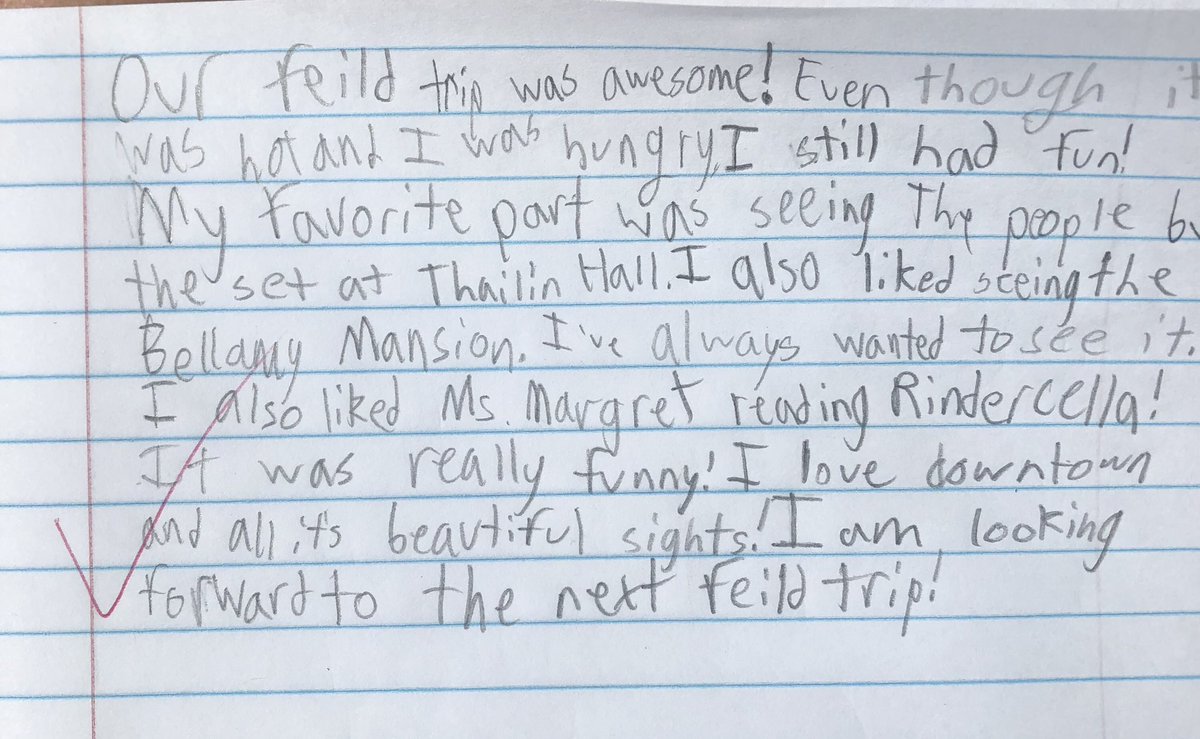 Our feild trip was awesome! Even though it
was hot and I was hungry, I still had fun!
My favorite part was seeing Thy people by
the set at Thailin Hall. I also liked seeing the
Bellamy Mansion. I've always wanted to see it.
I also liked Ms. Margret reading Rindercella!
It was really funny! I love downtown
and all it's beautiful sights! I am looking
forward to the next feild trip!